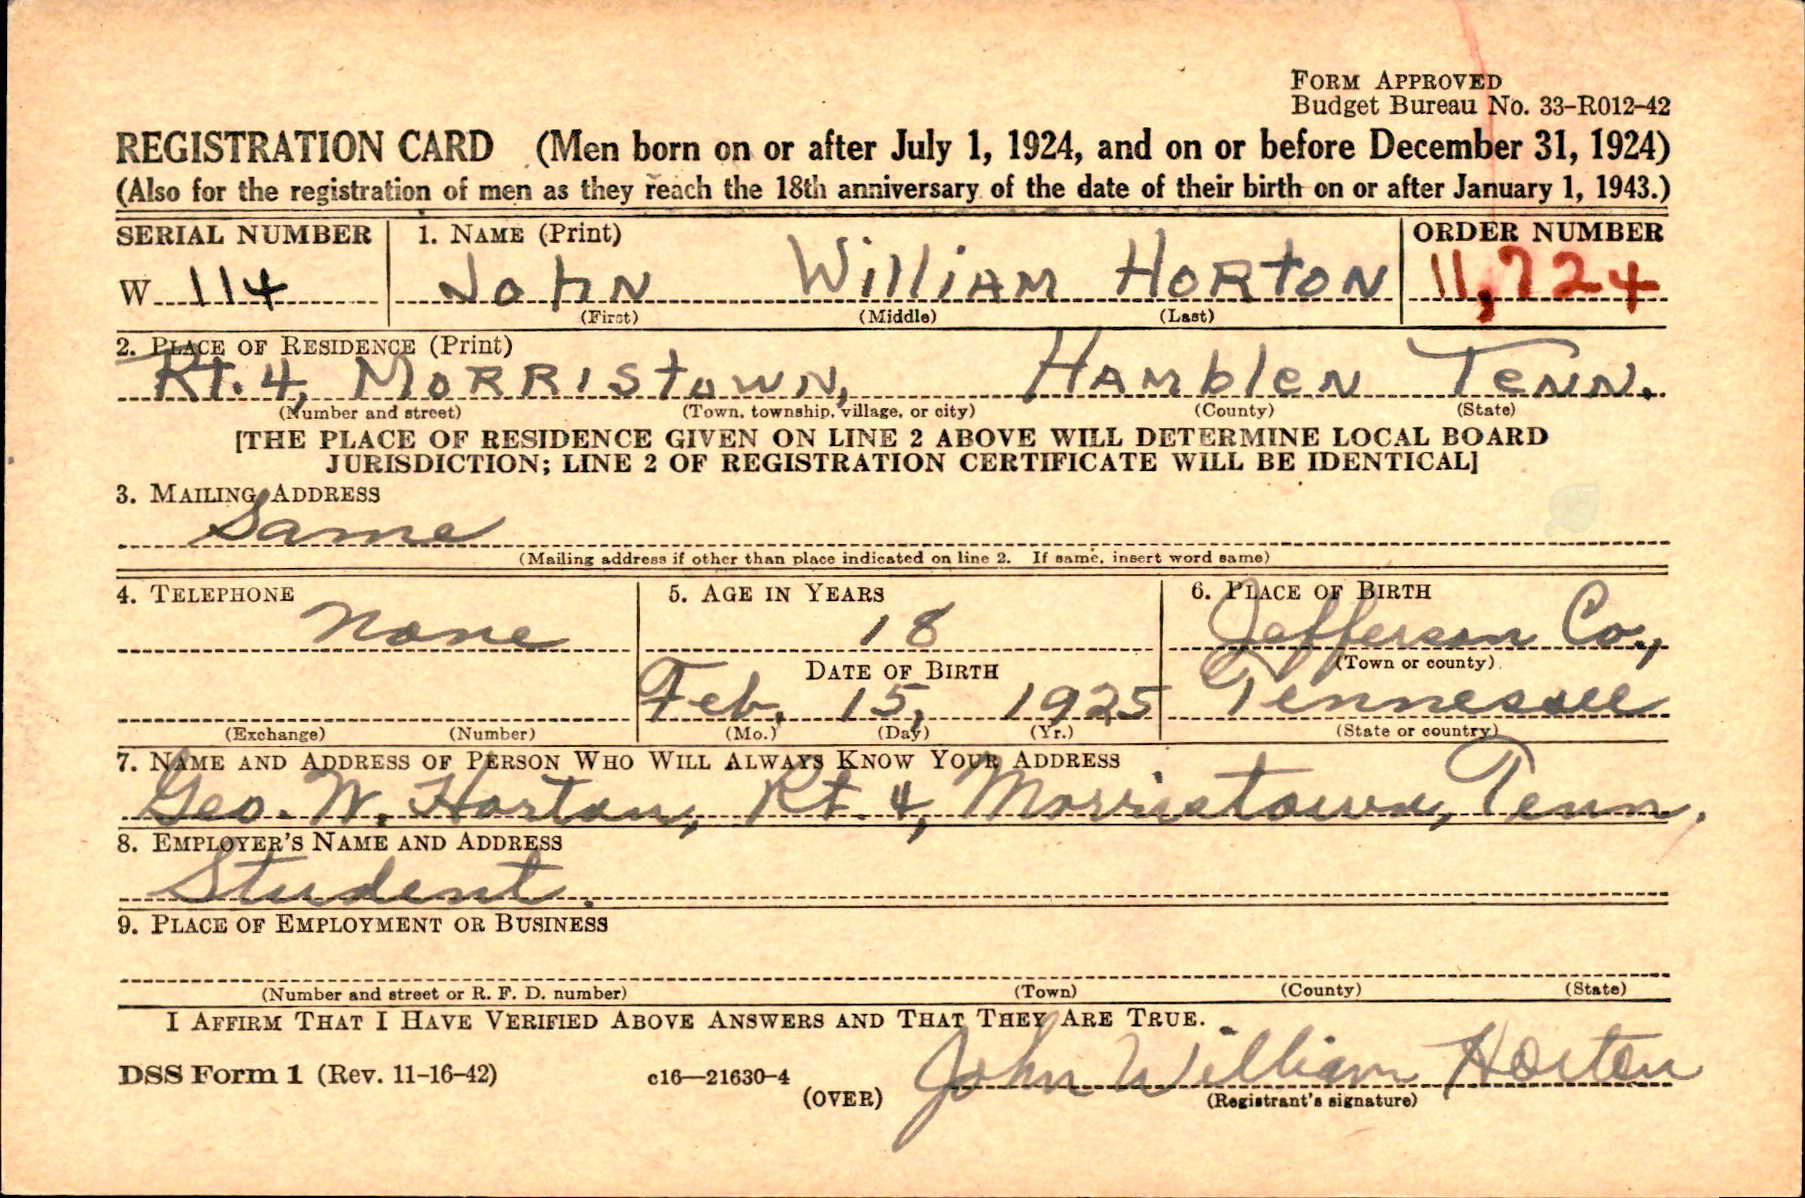 FORM APPROVED
Budget Bureau No. 33-R012-42
REGISTRATION CARD (Men born on or after July 1, 1924, and on or before December 31, 1924)
(Also for the registration of men as they reach the 18th anniversary of the date of their birth on or after January 1, 1943.)
SERIAL NUMBER 1. NAME (Print) ORDER NUMBER
W 114 John William Horton 11,724
(First) (Middle) (Last)
2. PLACE OF RESIDENCE (Print)
Rt. 4, Morristown, Hamblen Tenn.
(Number and street) (Town, township, village, or city) (County) (State)
[THE PLACE OF RESIDENCE GIVEN ON LINE 2 ABOVE WILL DETERMINE LOCAL BOARD
JURISDICTION; LINE 2 OF REGISTRATION CERTIFICATE WILL BE IDENTICAL]
3. MAILING ADDRESS
Same
(Mailing address if other than place indicated on line 2. If same, insert word same)
4. TELEPHONE 5. AGE IN YEARS 6. PLACE OF BIRTH
None 18 Jefferson Co.,
DATE OF BIRTH (Town or county)
Feb. 15, 1925 Tennessee
(Exchange) (Number) (Mo.) (Day) (Yr.) (State or country)
7. NAME AND ADDRESS OF PERSON WHO WILL ALWAYS KNOW YOUR ADDRESS
Geo. W. Horton, Rt. 4, Morristown, Tenn.
8. EMPLOYER'S NAME AND ADDRESS
Student.
9. PLACE OF EMPLOYMENT OR BUSINESS
(Number and street or R. F. D. number) (Town) (County) (State)
I AFFIRM THAT I HAVE VERIFIED ABOVE ANSWERS AND THAT THEY ARE TRUE.
John William Horton
DSS Form 1 (Rev. 11-16-42) c16—21630-4 (OVER) (Registrant's signature)